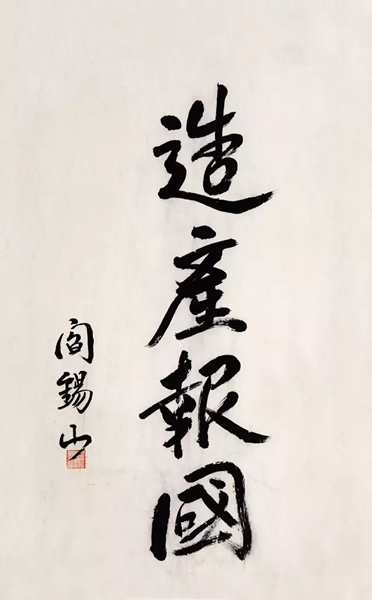 造產報國
閻錫山